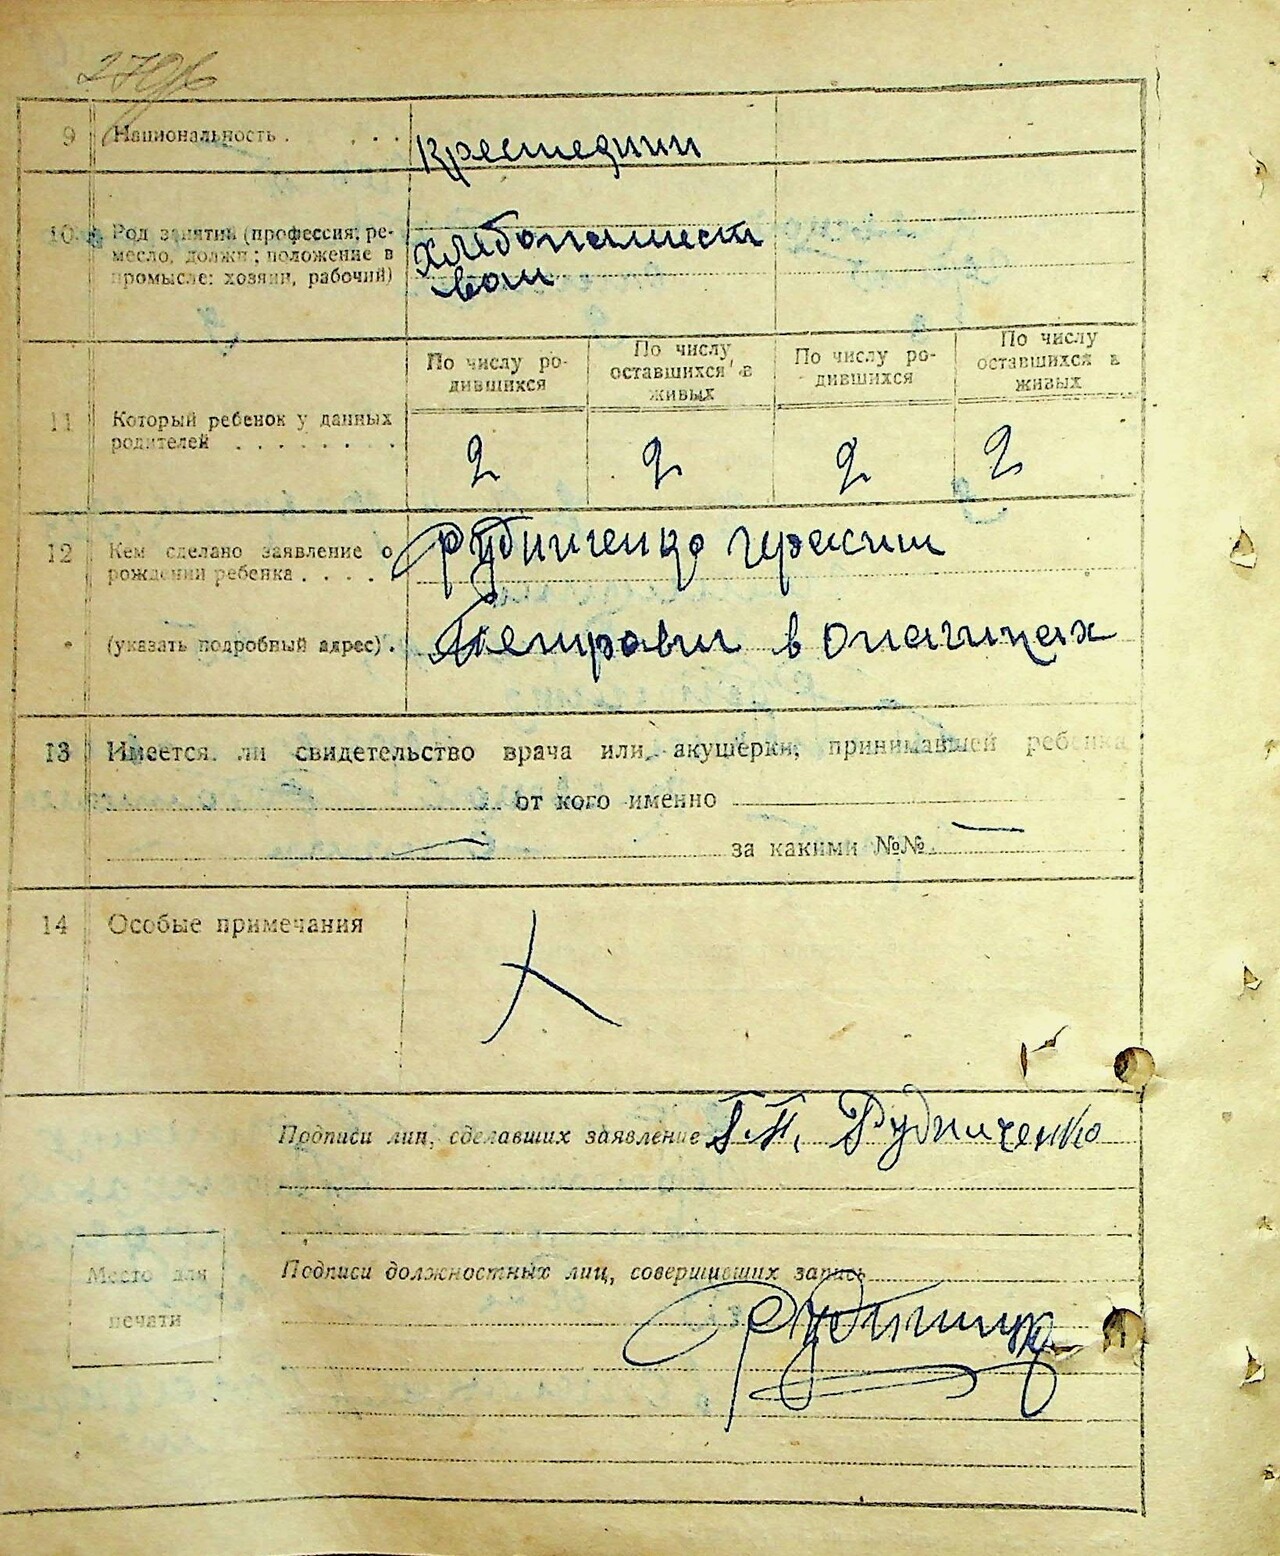 9 Национальность . . . .
10 Род занятий (профессия, ре-
месло, должн; положение в
промысле: хозяин, рабочий)
хлебопашест
вом
По числу ро-
дившихся
По числу
оставшихся в
живых
По числу ро-
дившихся
По числу
оставшихся в
живых
11 Который ребенок у данных
родителей . . . . . . .
2 2 2 2
12 Кем сделано заявление о
рождении ребенка . . . .
(указать подробный адрес) .
Рудниченко
в
13 Имеется ли свидетельство врача или акушерки, принимавшей ребенка
от кого именно
за какими №№
14 Особые примечания
Подписи лиц, сделавших заявление Г.П. Рудниченко
Место для
печати
Подписи должностных лиц, совершивших запись